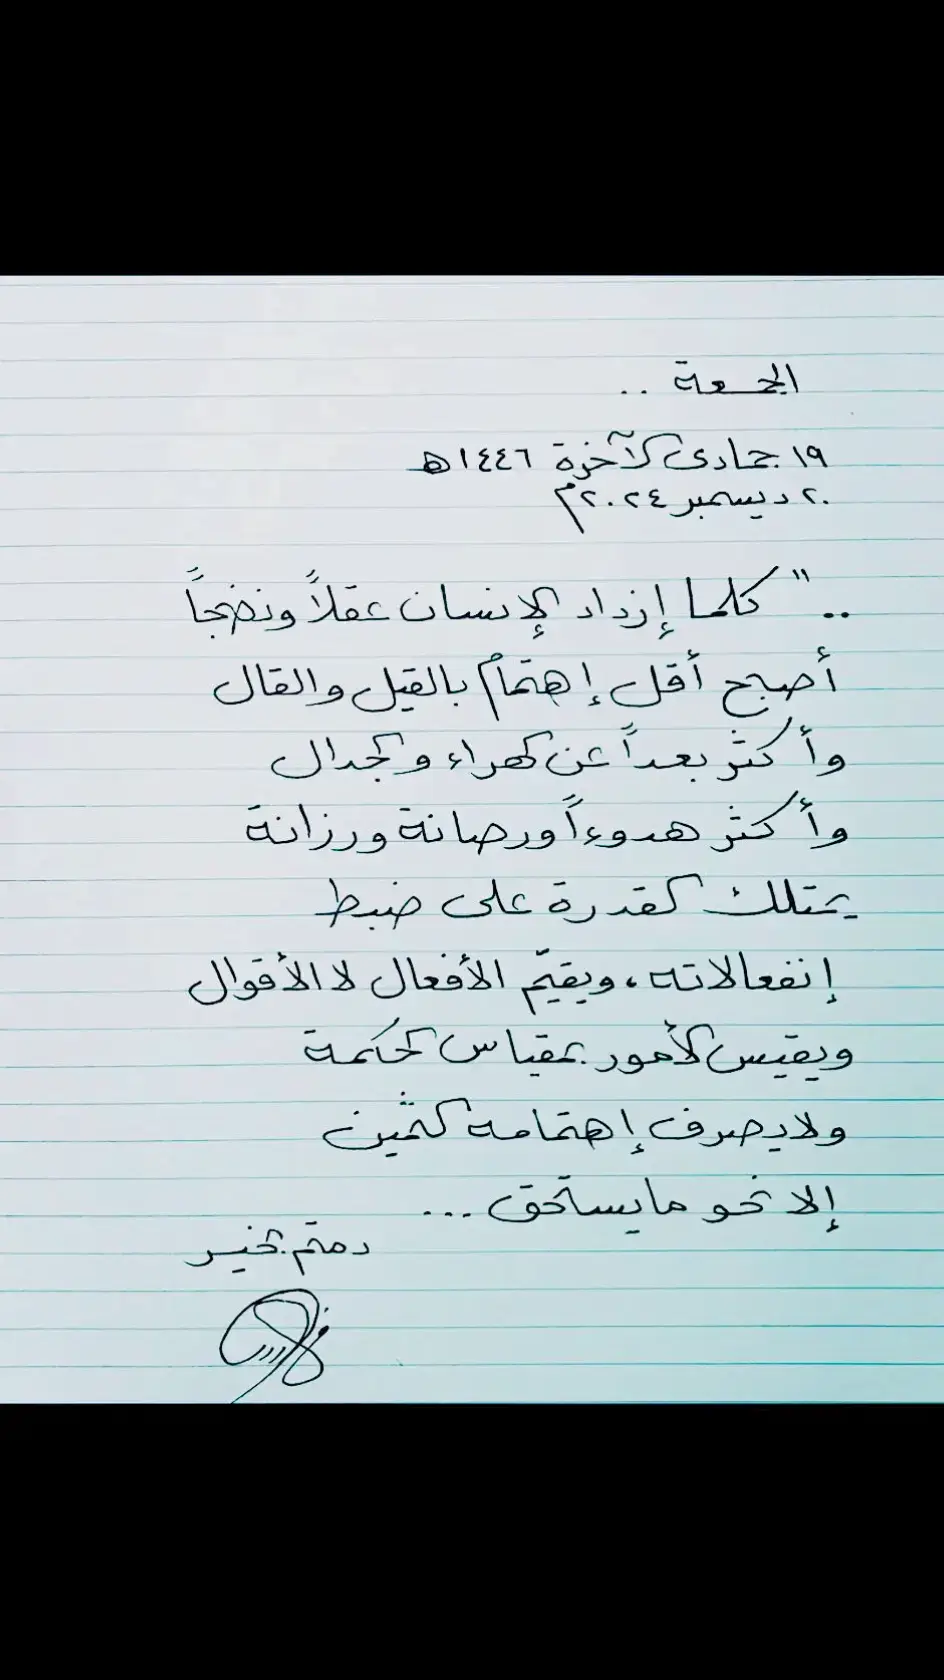 الجمعة ..
١٩ جمادى الآخرة ١٤٤٦هـ
٢٠ ديسمبر ٢٠٢٤م
.. " كلما إزداد الإنسان عقلاً ونضجاً
أصبح أقل إهتمامٌ بالقيل والقال
وأكثر بعداً عن الهراء والجدال
وأكثر هدوءاً ورصانة ورزانة
يمتلك القدرة على ضبط
إنفعالاته ، ويقيّم الأفعال لا الأقوال
ويقيس الأمور بمقياس الحكمة
ولايصرف إهتمامه الثمين
إلا نحو مايستحق ...
دمتم بخير